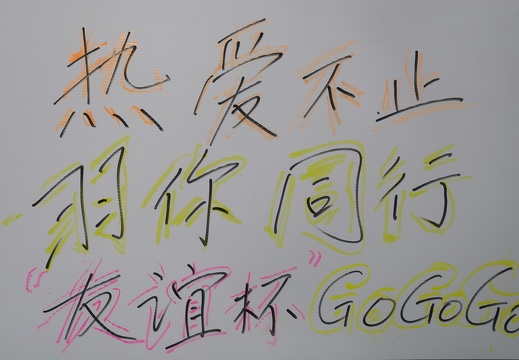 热爱不止
羽你同行
“友谊杯”GoGoGo